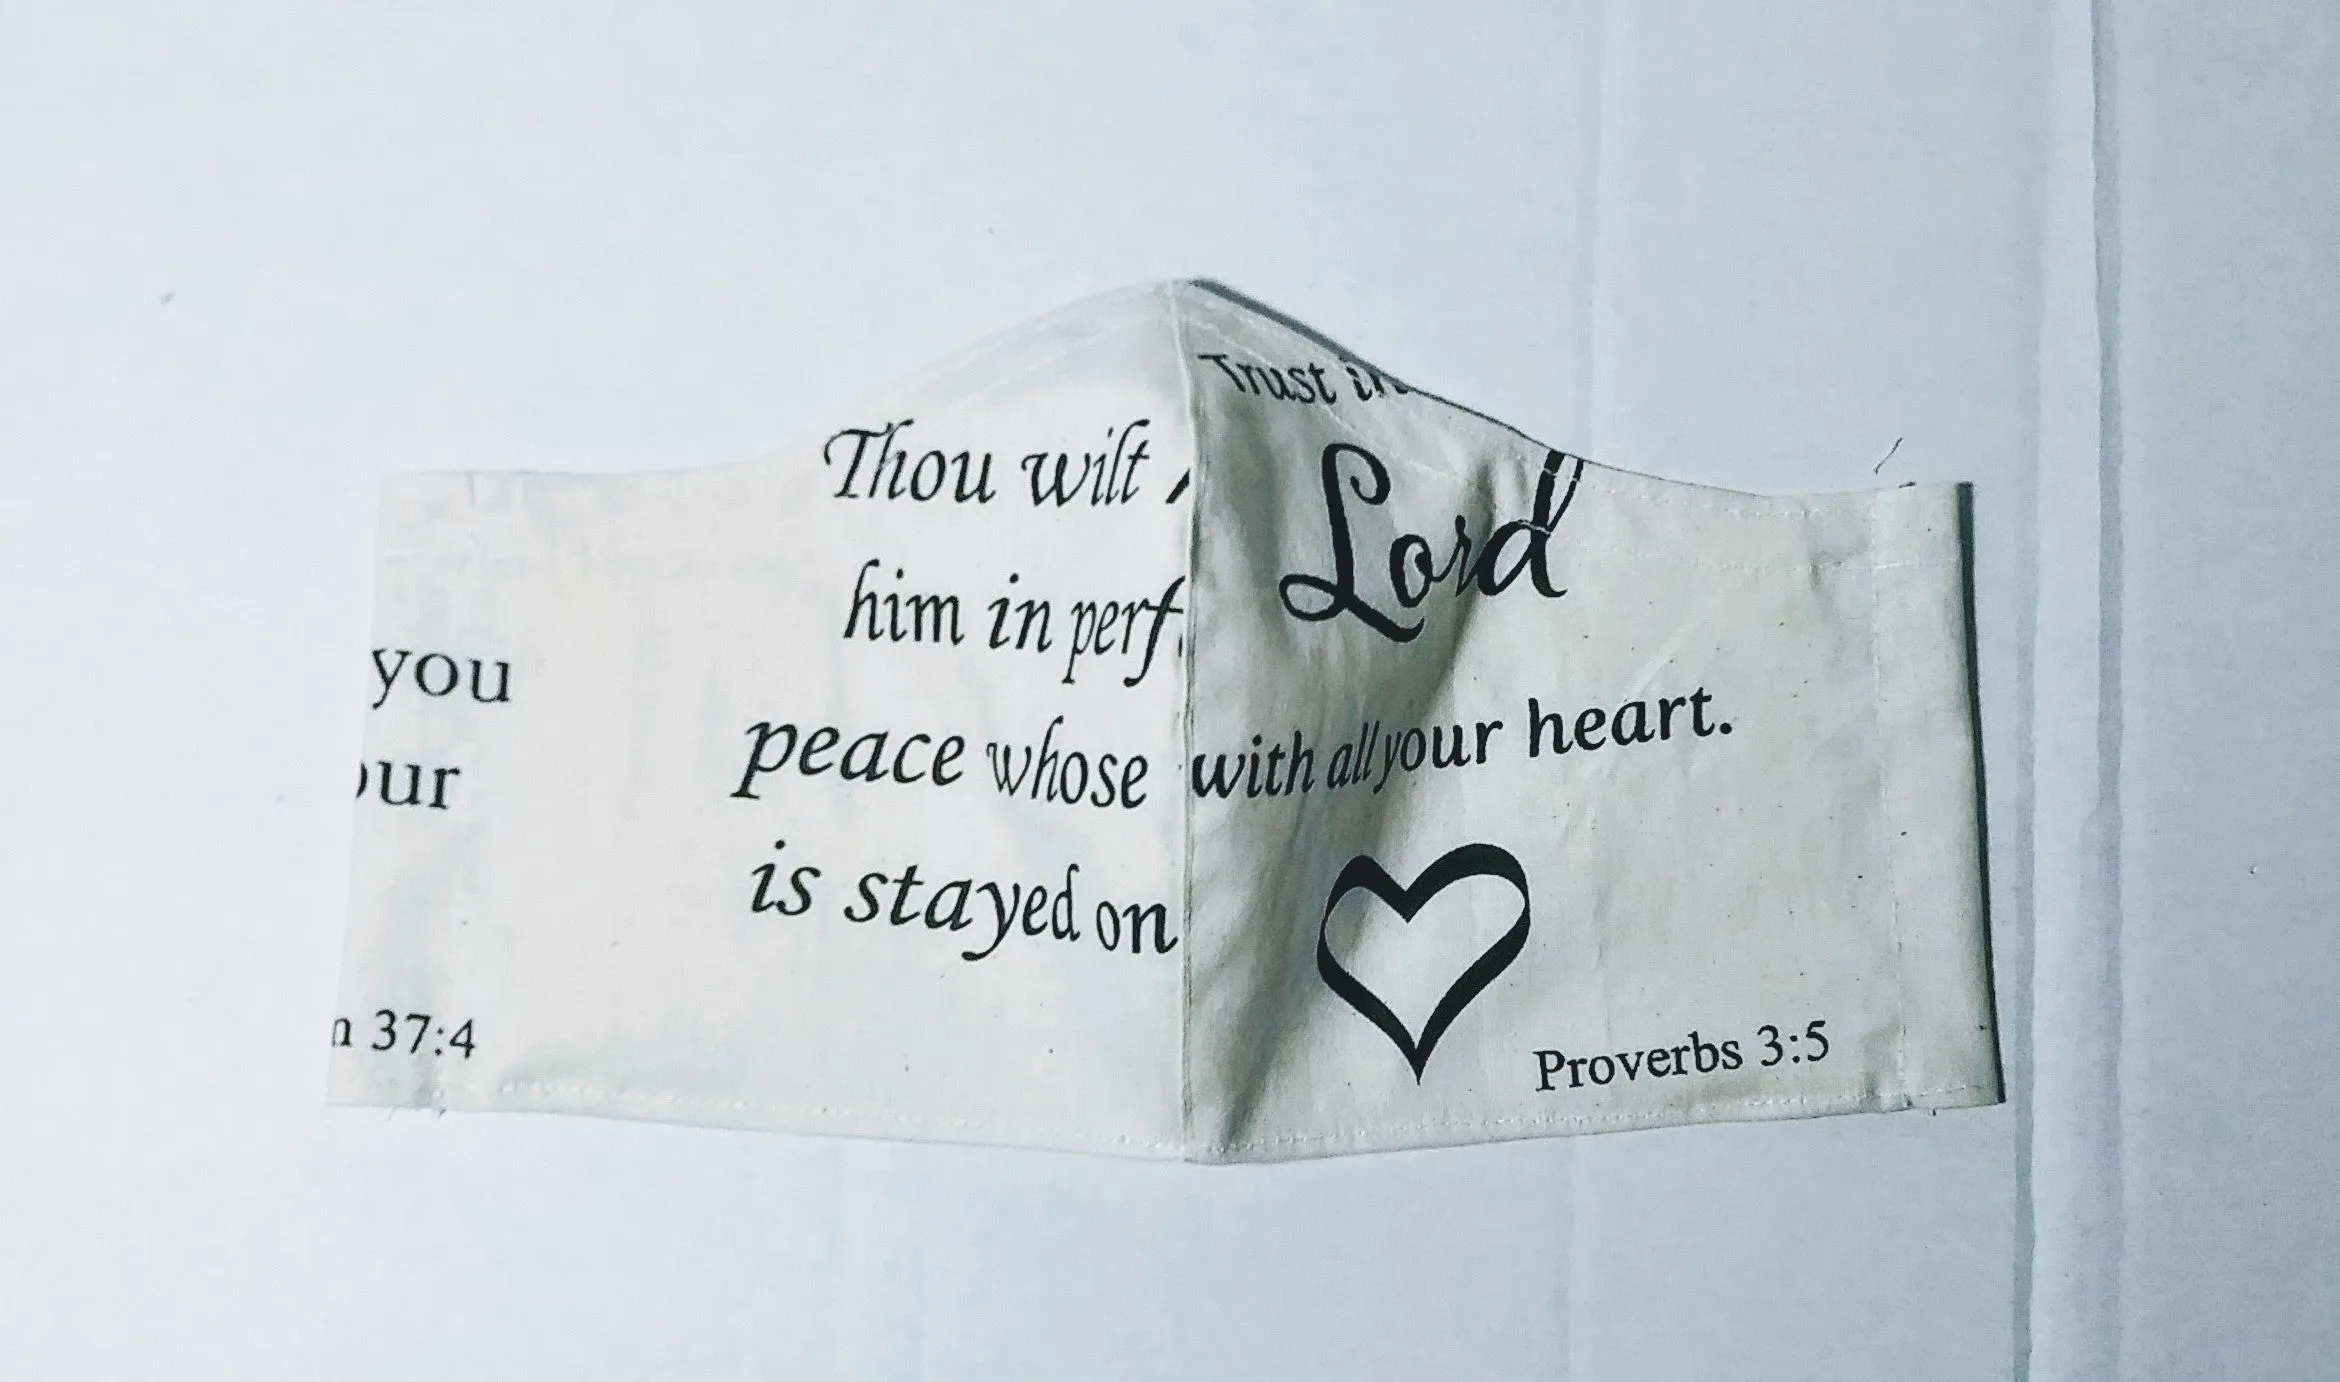 you
our
n 37:4
Thou wilt
him in perf
peace whose
is stayed on
Trust in
Lord
with all your heart.
Proverbs 3:5